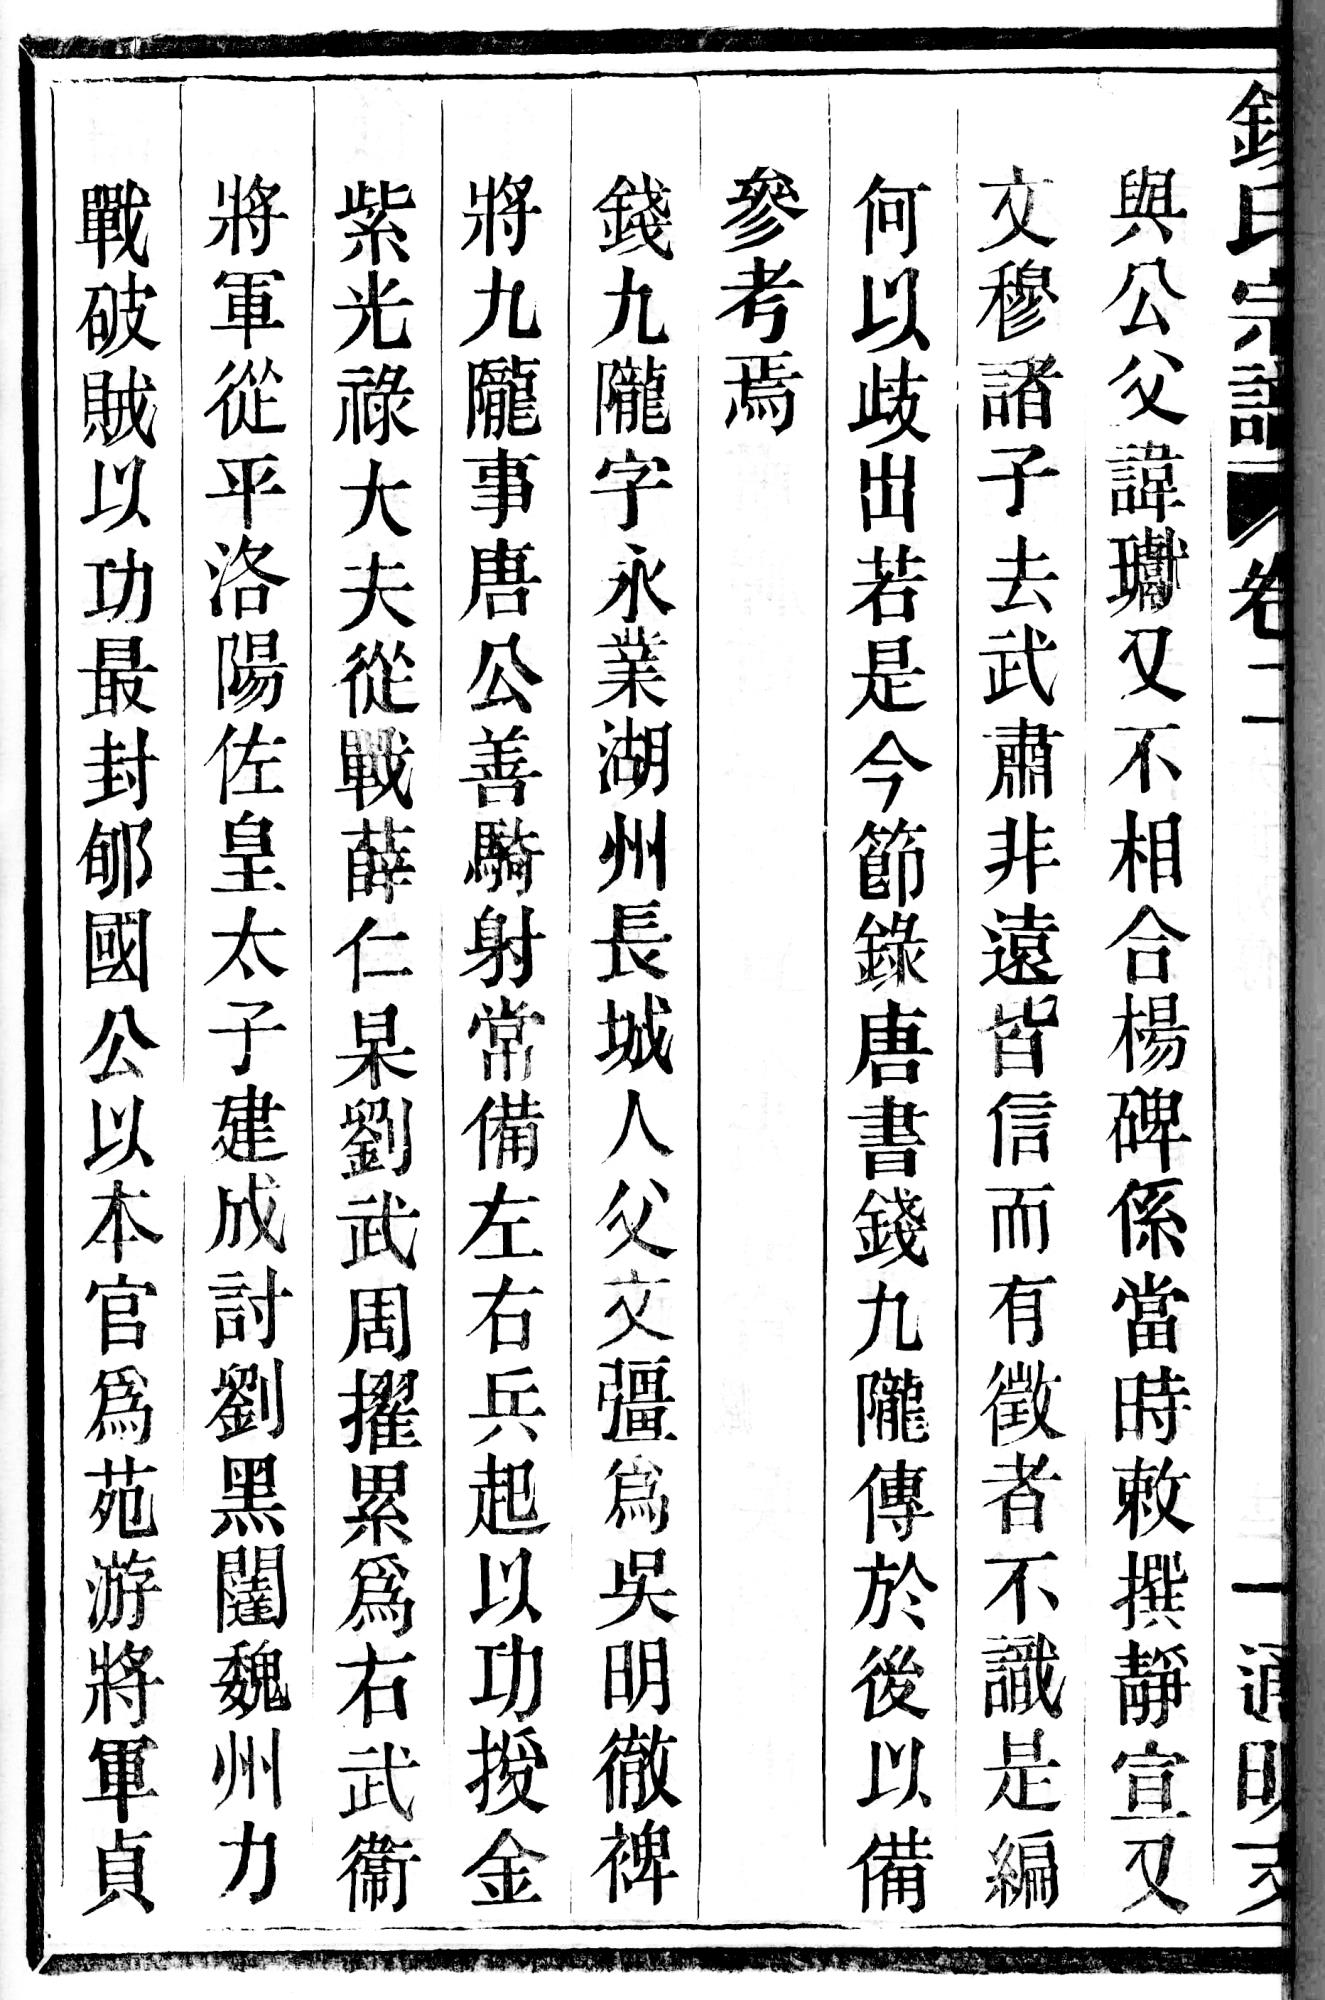 錢氏宗譜 卷二 一 通明支
與公父諱瓛又不相合楊碑係當時敕撰靜宣又
文穆諸子去武肅非遠皆信而有徵者不識是編
何以歧出若是今節錄唐書錢九隴傳於後以備
參考焉
錢九隴字永業湖州長城人父文彊爲吳明徹裨
將九隴事唐公善騎射常備左右兵起以功授金
紫光祿大夫從戰薛仁杲劉武周擢累爲右武衞
將軍從平洛陽佐皇太子建成討劉黑闥魏州力
戰破賊以功最封郇國公以本官爲苑游將軍貞